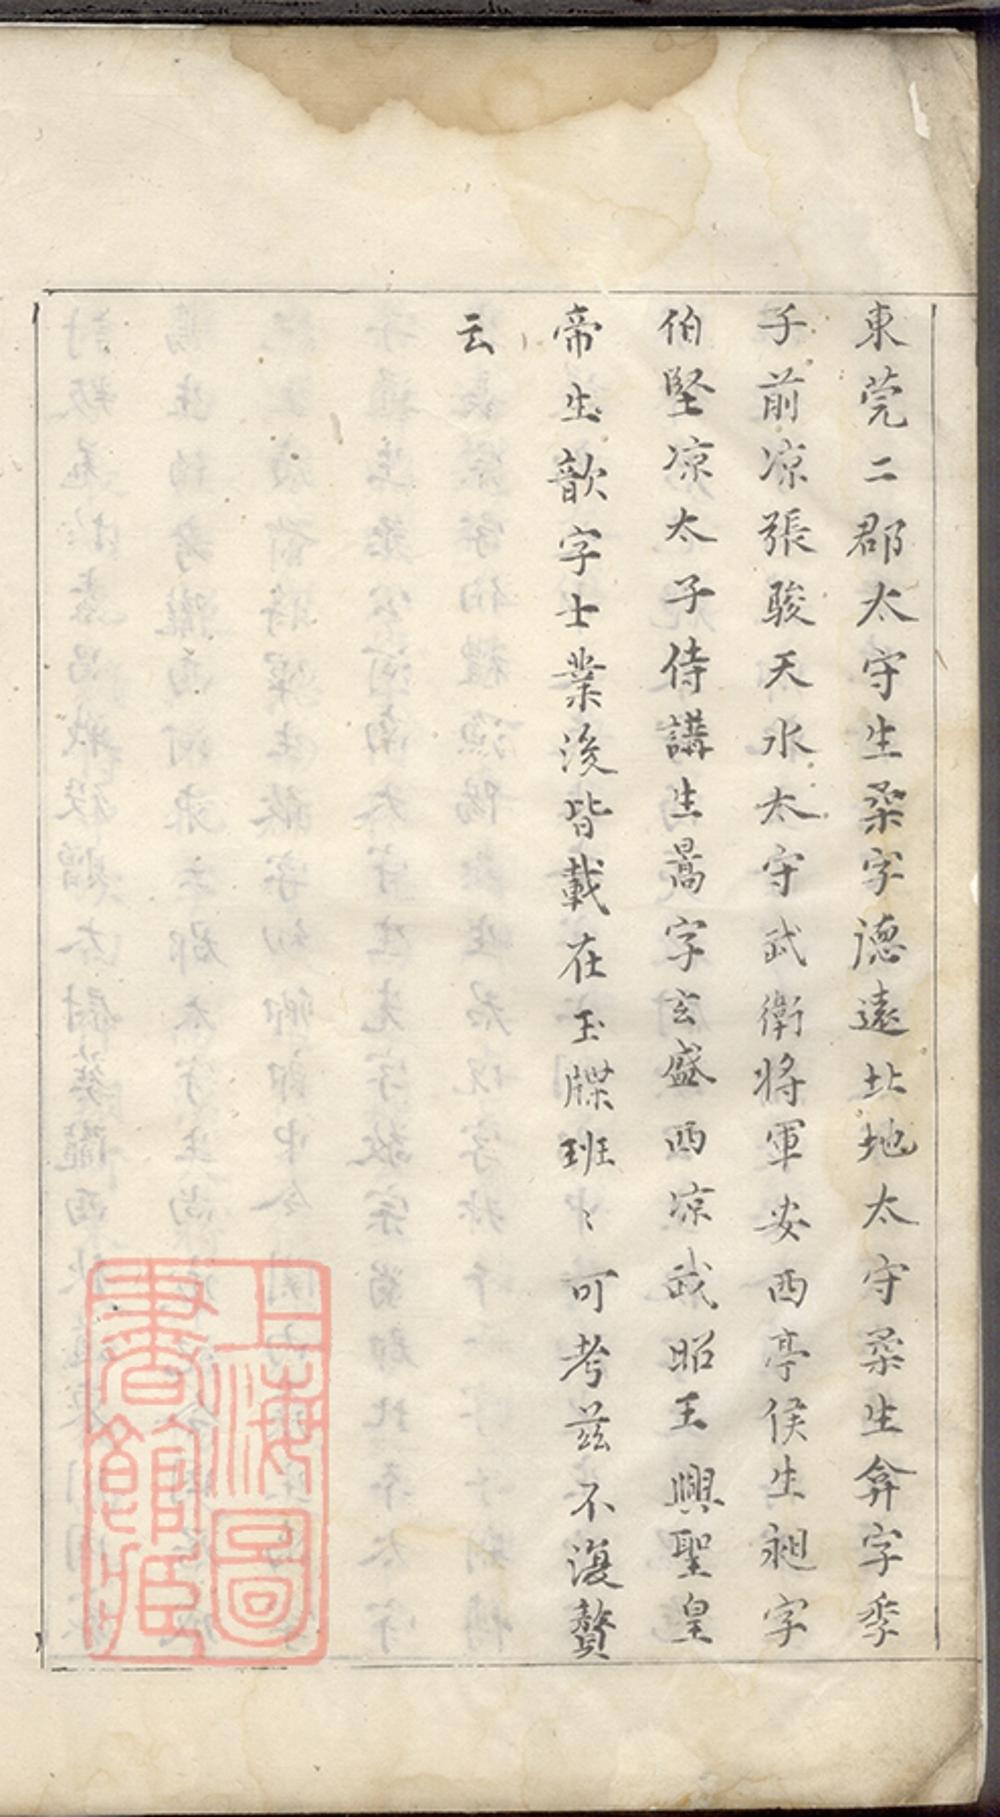 東莞二郡太守生桒字德遠北地太守柔生弇字季
子前凉張駿天水太守武衛將軍安西亭侯生昶字
伯堅凉太子侍講生暠字玄盛西凉武昭王興聖皇
帝生歆字士業後皆載在玉牒班〻可考茲不復贅
云
上海圖
書館藏